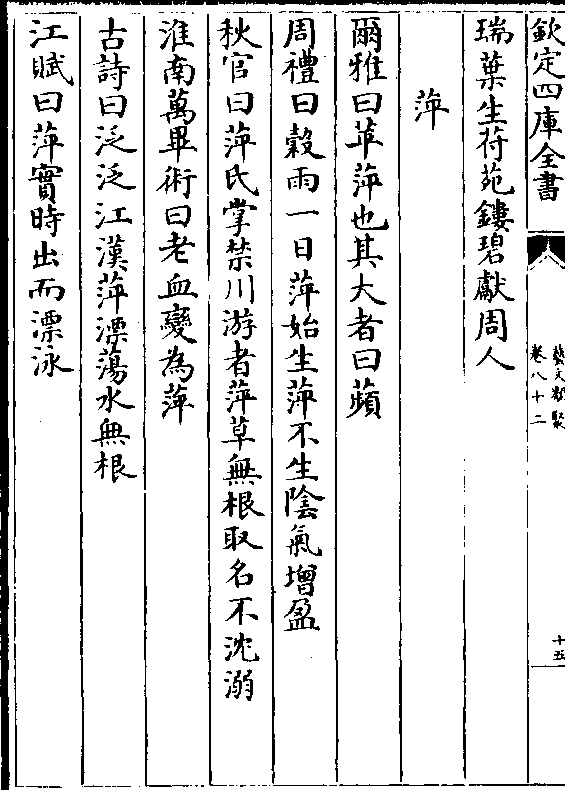 欽定四庫全書
藝文類聚
卷八十二
十五
瑞葉生荷苑鏤碧獻周人
萍
爾雅曰苹萍也其大者曰蘋
周禮曰穀雨一日萍始生萍不生陰氣增盈
秋官曰萍氏掌禁川游者萍草無根取名不沈溺
淮南萬畢術曰老血變為萍
古詩曰泛泛江漢萍漂蕩水無根
江賦曰萍實時出而漂泳